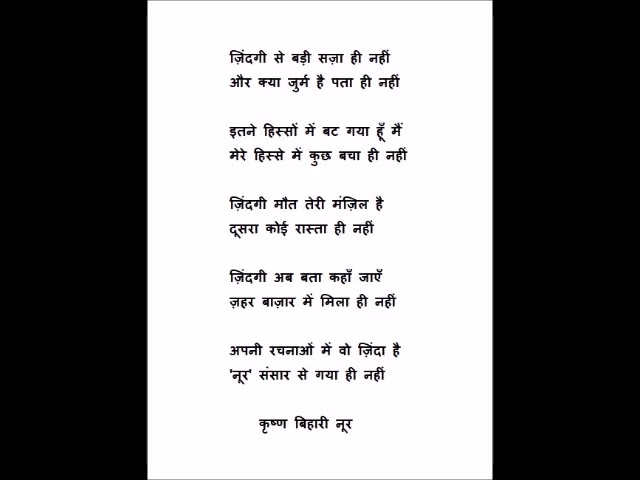 ज़िंदगी से बड़ी सज़ा ही नहीं
और क्या जुर्म है पता ही नहीं
इतने हिस्सों में बट गया हूँ मैं
मेरे हिस्से में कुछ बचा ही नहीं
ज़िंदगी मौत तेरी मंज़िल है
दूसरा कोई रास्ता ही नहीं
ज़िंदगी अब बता कहाँ जाएँ
ज़हर बाज़ार में मिला ही नहीं
अपनी रचनाओं में वो ज़िंदा है
'नूर' संसार से गया ही नहीं
कृष्ण बिहारी नूर